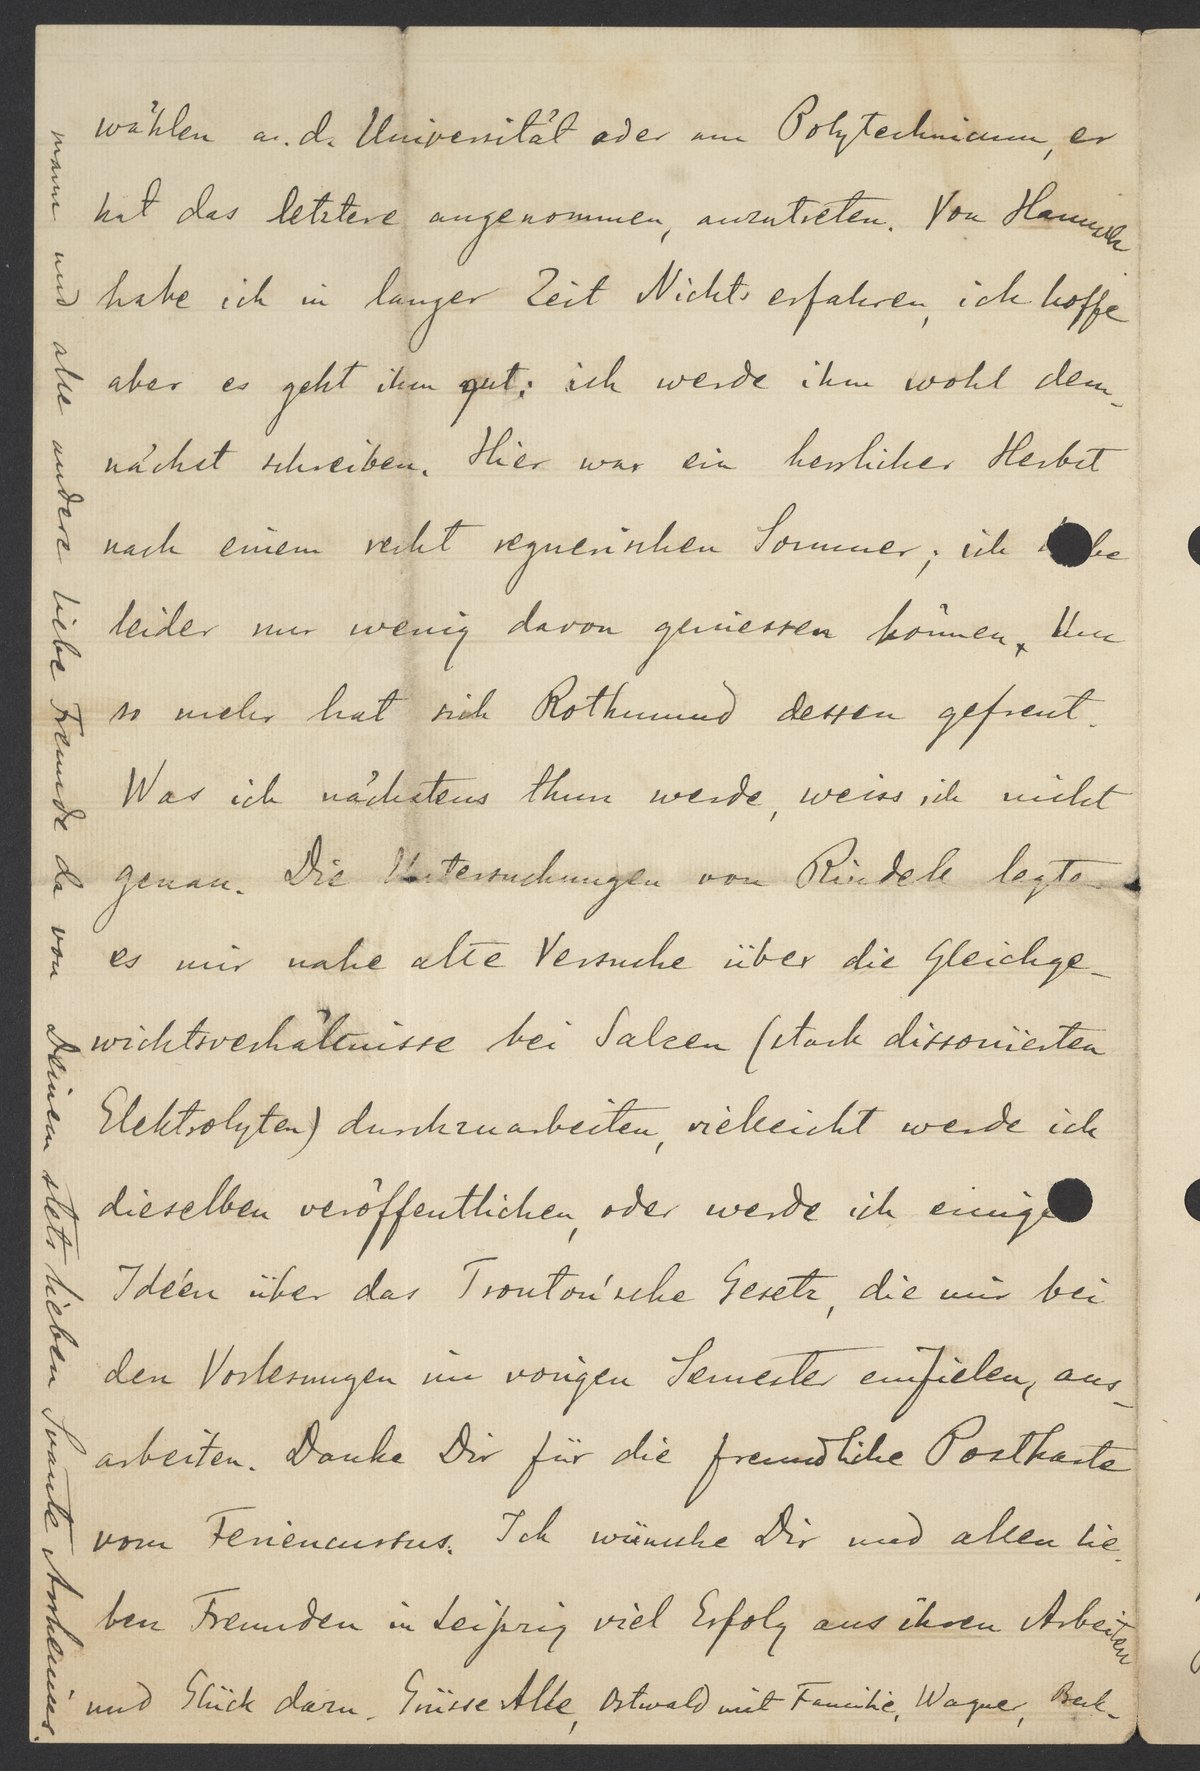 wählen a. d. Universität oder am Polytechnicum, er
hat das letztere angenommen, anzutreten. Von
habe ich in langer Zeit Nichts erfahren, ich hoffe
aber es geht ihm gut; ich werde ihm wohl dem-
nächst schreiben. Hier war ein herrlicher Herbst
nach einem recht regnerischen Sommer; ich habe
leider nur wenig davon geniessen können. Um
so mehr hat sich Rothmund dessen gefreut.
Was ich nächstens thun werde, weiss ich nicht
genau. Die Untersuchungen von legte
es mir nahe alte Versuche über die Gleichge-
wichtsverhältnisse bei Salzen (stark dissociierten
Elektrolyten) durchzuarbeiten, vielleicht werde ich
dieselben veröffentlichen, oder werde ich einige
Idéen über das Trouton'sche Gesetz, die mir bei
den Vorlesungen im vorigen Semester einfielen, aus-
arbeiten. Danke Dir für die freundliche Postkarte
vom Feriencursus. Ich wünsche Dir und allen lie-
ben Freunden in Leipzig viel Erfolg aus ihren Arbeiten
und Glück dazu. Grüsse Alle, Ostwald mit Familie, Wagner, Beck-
mann und alle andere liebe Freunde da von Deinem stets lieben Svante Arrhenius.